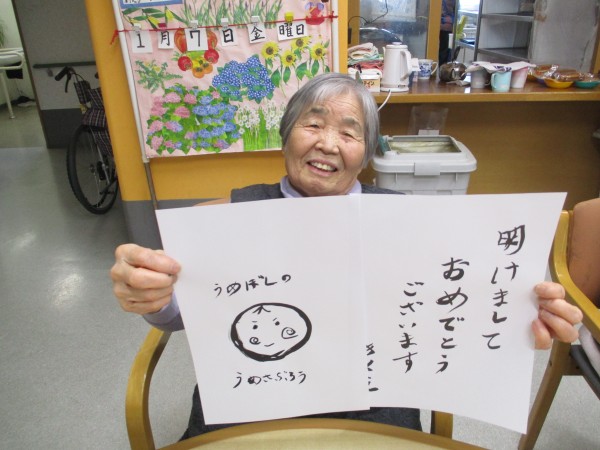 1月7日金曜日
明けまして
おめでとう
ございます
うめぼしの
うめさぶろう